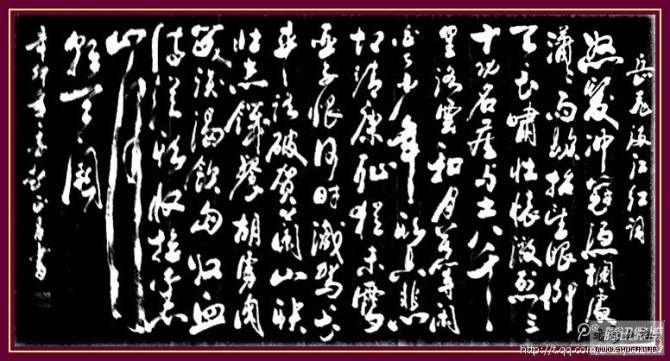 岳飛滿江紅詞
怒髮冲冠憑欄處
瀟瀟雨歇抬望眼仰
天長嘯壯懷激烈三
十功名塵與土八千
里路雲和月莫等閑
白了少年頭空悲
切靖康耻猶未雪
臣子恨何時滅駕長
車踏破賀蘭山缺
壯志饑餐胡虜肉
笑談渴飲匈奴血
待從頭收拾舊
山河
朝天闕
辛卯
腾讯微博
http://t.qq.com/